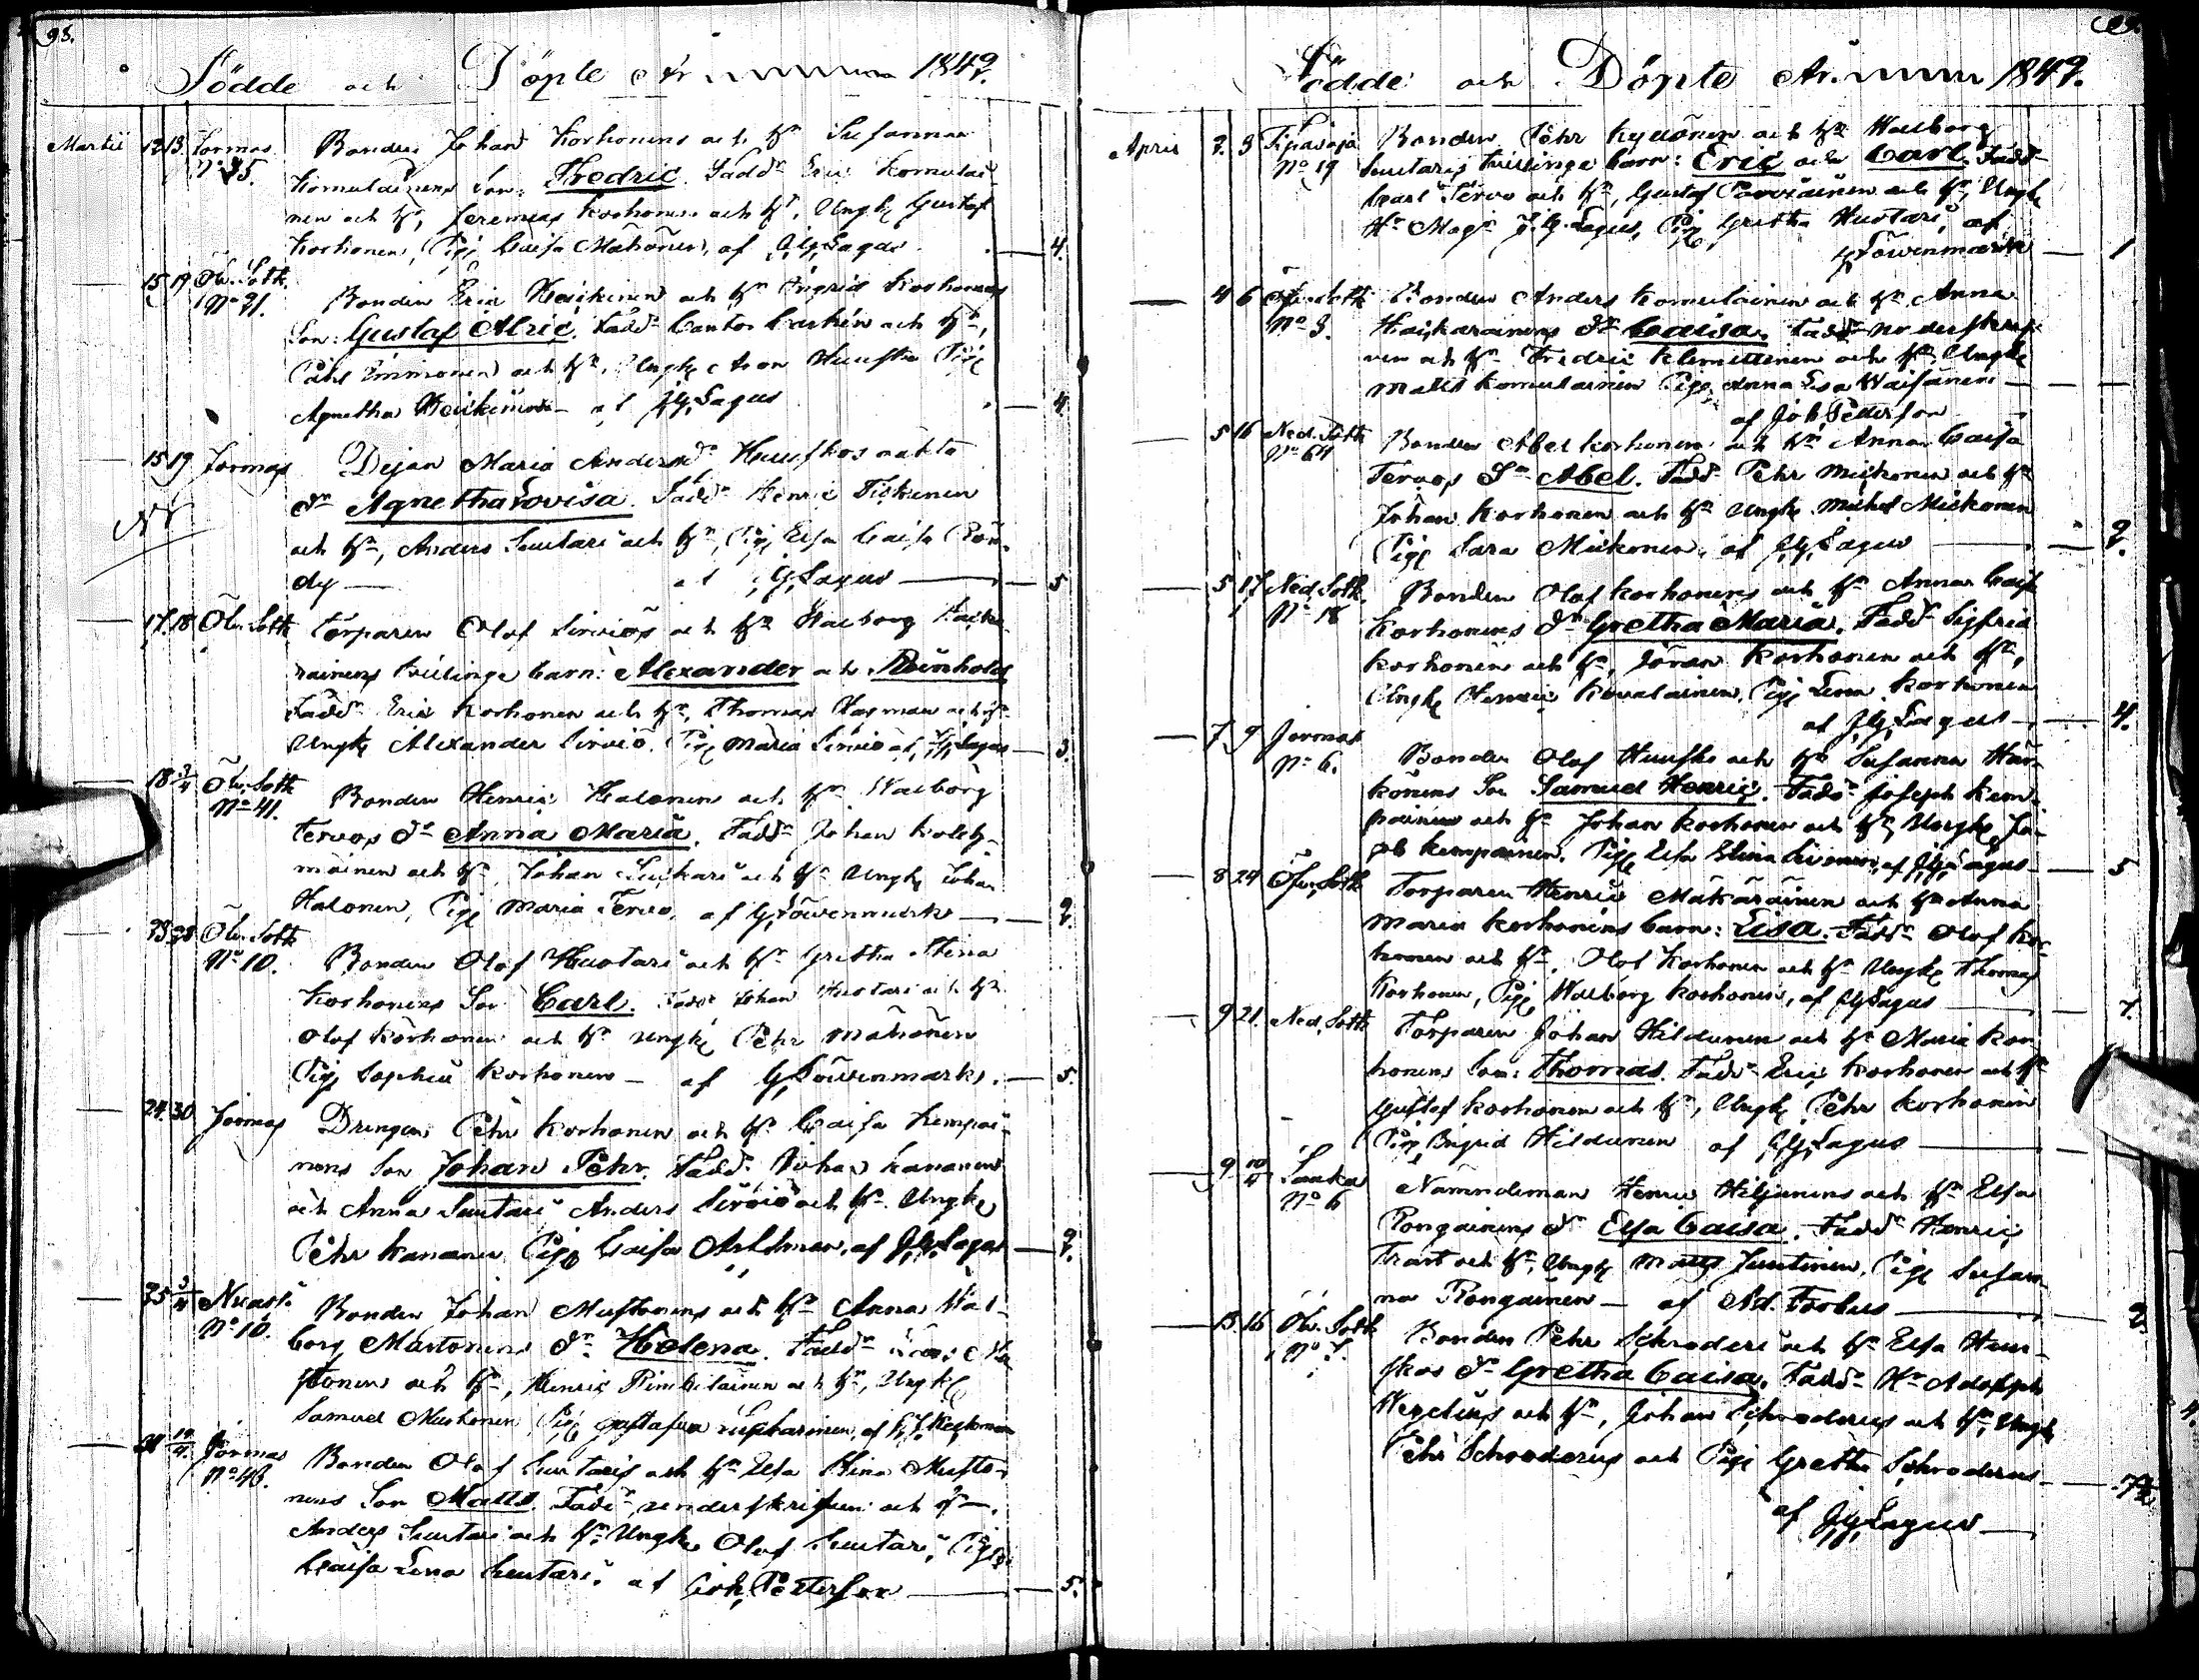 98.
Födde och Döpte År 1849.
Martii 12 13. Jormas Bonden Johan Korhonens och H:u Susanna
N:o 35. Komulainens Son: Fredric. Fadd: Eric Komulai-
nen och H:u, Jeremias Korhonen och H:u, Ungk. Gustaf
Korhonen, Pig. Caisa Mähönen, af J.G. Lagus — 4.
15 19 Öfv. Sotk. Bonden Eric Heickinens och H:u Ingrid Korhonens
N:o 21. Son: Gustaf Alric. Fadd: Cantor och H:u,
Påhl Immonen och H:u, Ungk. Aron Huusko Pig.
Agnetha Heickinen — af J.G. Lagus — 4
15 19 Jormas Dejan Maria Andersd:r Huuskos oäkta
D:r Agnetha Lovisa. Fadd: Henric Tickinen
och H:u, Anders Suutari och H:u, Pig. Elsa Caisa Rön-
dy — af J.G. Lagus — 5
17. 18 Öfv. Sotk Torparen Olof Sirviös och H:u Walborg
rainens tvillinge barn: Alexander och Reinhold
Fadd: Eric Korhonen och H:u, Thomas Hagman och H:u
Ungk. Alexander Sirviö. Pig. Maria Sirviö af J.G. Lagus — 3.
18 Öfv. Sotk Bonden Henric Halonens och H:u Walborg
N:o 41. Tervos D:r Anna Maria. Fadd: Johan
mainen och H:u, Johan och H:u Ungk. Johan
Halonen, Pig. Maria Tervo, af G. Löwenmark — 2.
23 28 Öfv. Sotk
N:o 10. Bonden Olof Huotari och H:u Gretha Stina
Korhonens Son Carl. Fadd: Johan Huotari och H:u
Olof Korhonen och H:u Ungk. Pehr Mähönen
Pig. Sophia Korhonen — af G. Löwenmark. — 5.
24. 30 Jormas Drengen Pehr Korhonen och H:u Caisa Kempai-
nens Son Johan Pehr. Fadd: Johan Kananen
och Anna Suutari Anders Sirviö och H:u Ungk.
Pehr Kananen Pig. Caisa af J.G. Lagus — 2.
25 3/4 Nuas Bonden Johan Mustonens och H:u Anna Wal-
N:o 10. borg Martonens D:r Helena. Fadd:
stonen och H:u, Henric och H:u, Ungk.
Samuel Mustonen Pig. Gustafva
Jormas Bonden Olof Suutaris och H:u Elsa Stina Musto-
N:o 46. nens Son Matts. Fadd: underskrifven och H:u,
Anders Suutari och H:u. Ungk. Olof Suutari, Pig.
Caisa Lena Suutari. af Joh. Petterson — 5.
Födde och Döpte År. 1849.
April 2. 3 Tipasoja Bonden Pehr Kyllönen och H:u Walborg
N:o 19 Suutaris tvillinge barn: Eric och Carl. Fadd:
Carl Tervo och H:u, Gustaf och H:u, Ungk.
H:r Mag: J.G. Lagus, Pig. Gretha Huotari, af
G. Löwenmark — 1
4 6 Öfv. Sotk Bonden Anders Komulainen och H:u Anna
N:o 3. Haikarainens D:r Caisa. Fadd: underskrif-
ven och H:u Fredric Klemettinen och H:u, Ungk.
Matts Komulainen Pig. Anna Lisa Waisänen —
af Joh. Petterson
5 16 Ned. Sotk Bonden Abel Korhonens och H:u Anna Caisa
N:o 64 Tervos S:n Abel. Fadd: Pehr Mickonen och H:u
Johan Korhonen och H:u Ungk. Michel Mickonen
Pig. Sara Mickonen, af J.G. Lagus — 2.
5 17 Ned. Sotk. Bonden Olof Korhonens och H:u Anna Caisa
N:o 18 Korhonens D:r Gretha Maria. Fadd: Sigfrid
Korhonen och H:u, Göran Korhonen och H:u,
Ungk. Henric Kovalainen. Pig. Lena Korhonen
af J.G. Lagus — 4.
7 9 Jormas
N:o 6. Bonden Olof Huusko och H:u Susanna Här-
könens Son Samuel Henric. Fadd: Joseph Kem-
painen och H:u Johan Korhonen och H:u, Ungk. Ja-
cob Kempainen, Pig. Elsa Stina af J.G. Lagus — 5
8 24 Öfv. Sotk Torparen Henric Mäkäräinen och H:u Anna
Maria Korhonens barn: Lisa. Fadd: Olof Kor-
honen och H:u, Olof Korhonen och H:u Ungk. Thomas
Korhonen, Pig. Walborg Korhonen, af J.G. Lagus — 7.
9 21. Ned. Sotk Torparen Johan Hildunen och H:u Maria Kor-
honens Son: Thomas. Fadd: Eric Korhonen och H:u
Gustaf Korhonen och H:u, Ungk. Pehr Korhonen
Pig. Brigid Hildunen af J.G. Lagus
9 Nämndeman Henric Hiljanens och H:u Elsa
N:o 6 Rongainens D:r Elsa Caisa. Fadd: Henric
Trast och H:u, Ungk. Matts Juntinen, Pig. Susan-
na Rongainen — af Ad. Forbus — 2.
13. 16 Öfv. Sotk Bonden Pehr Schroderi och H:u Elsa Huu-
skos D:r Gretha Caisa. Fadd: H:r Adolph
och H:u, Johan Schroderus och H:u, Ungk.
Pehr Schroderus och Pig. Gretha Schroderus
af J.G. Lagus